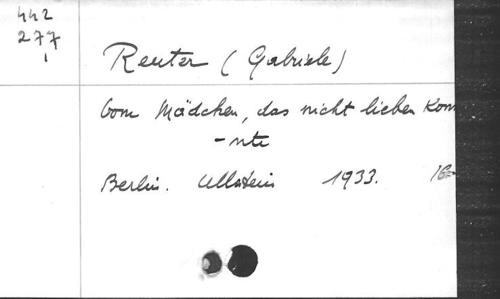 442
277
1
Reuter (Gabriele)
Vom Mädchen, das nicht lieben kon
-nte
Berlin. Ullstein 1933.